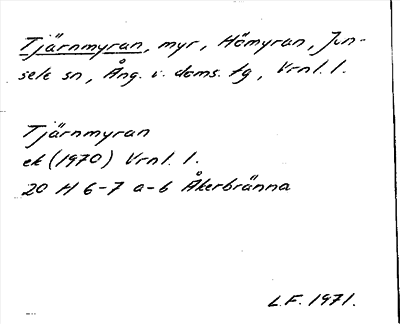 Tjärnmyran, myr, Hömyran, Jun-
sele sn, Ång. v. doms. tg, Vrnl. l.
Tjärnmyran
ek (1970) Vrnl. l.
20 H 6-7 a-b Åkerbränna
L.F. 1971.